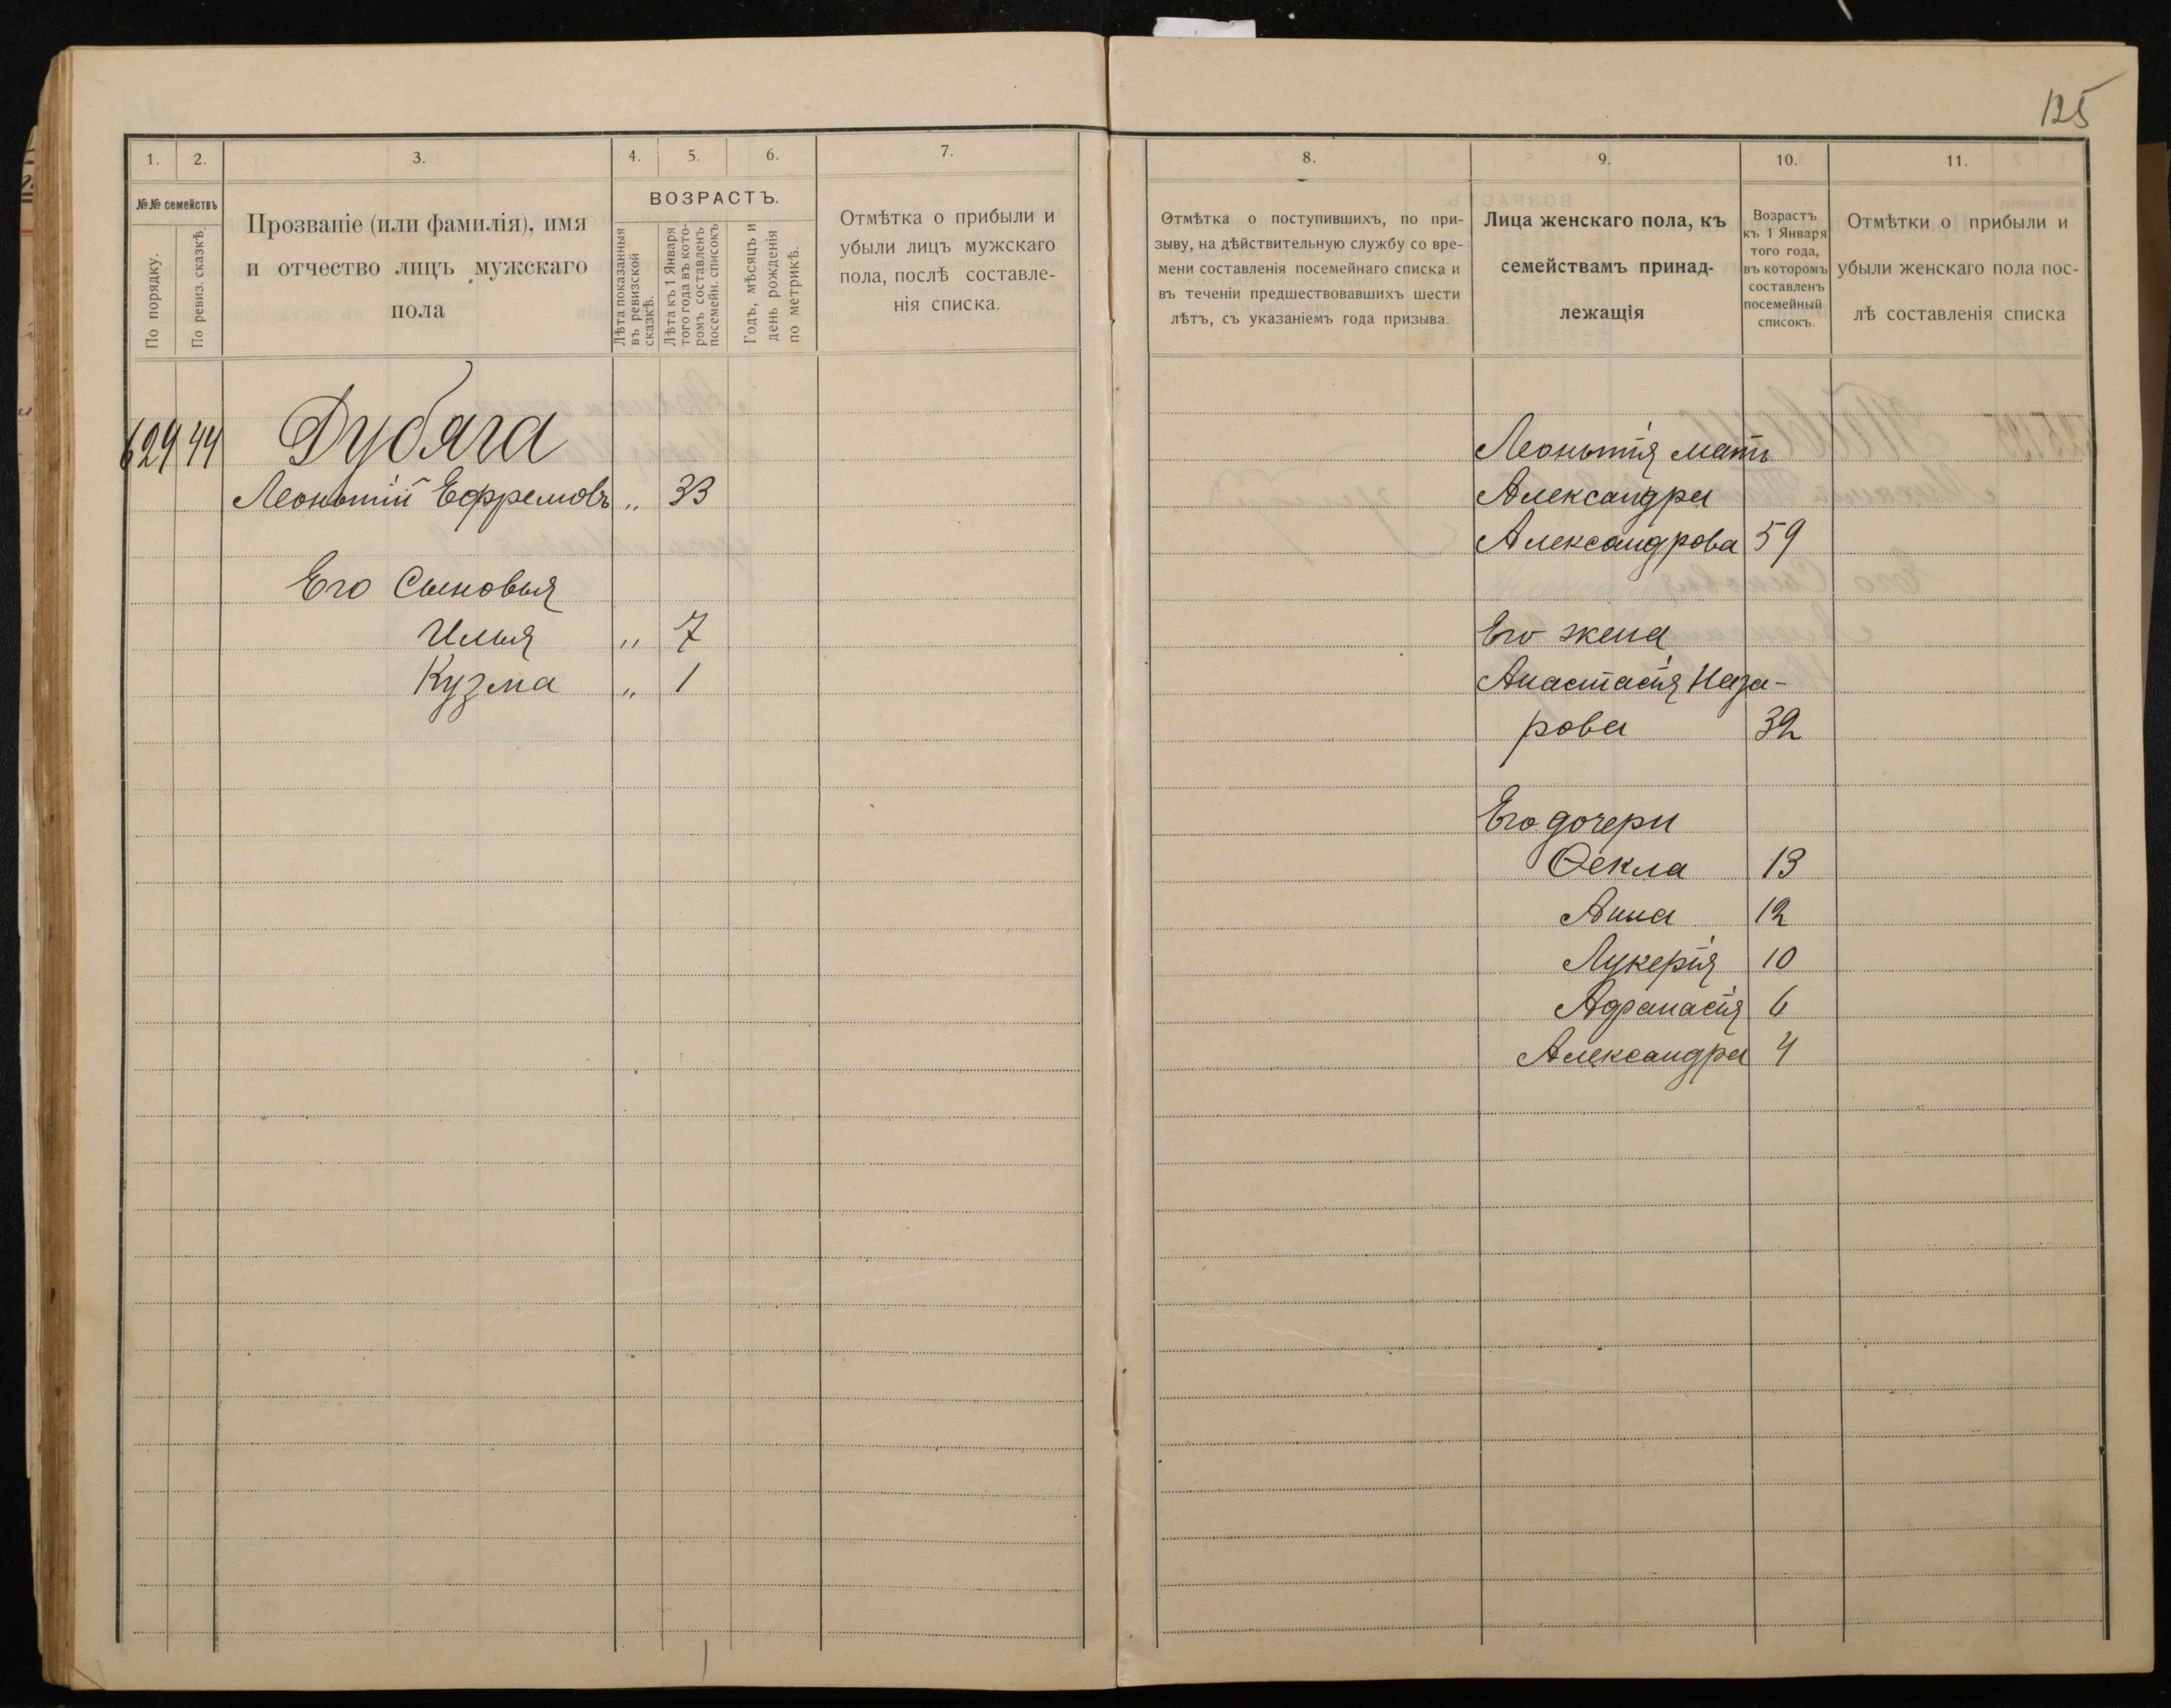 125
1. 2. 3. 4. 5. 6. 7.
№№ семействъ
По порядку.
По ревиз. сказкѣ.
Прозваніе (или фамилія), имя
и отчество лицъ мужскаго
пола
ВОЗРАСТЪ.
Лѣта показанныя
въ ревизской
сказкѣ.
Лѣта къ 1 Января
того года въ кото-
ромъ составленъ
посемейн. списокъ
Годъ, мѣсяцъ и
день рожденія
по метрикѣ.
Отмѣтка о прибыли и
убыли лицъ мужскаго
пола, послѣ составле-
нія списка.
629 44 Дубяга
Леонтій Ефремовъ „ 33
Его Сыновья
Илья „ 7
Кузма „ 1
8. 9. 10. 11.
Отмѣтка о поступившихъ, по при-
зыву, на дѣйствительную службу со вре-
мени составленія посемейнаго списка и
въ теченіи предшествовавшихъ шести
лѣтъ, съ указаніемъ года призыва.
Лица женскаго пола, къ
семействамъ принад-
лежащія
Возрастъ
къ 1 Января
того года,
въ которомъ
составленъ
посемейный
списокъ.
Отмѣтки о прибыли и
убыли женскаго пола пос-
лѣ составленія списка
Леонтія мать
Александра
Александрова 59
Его жена
Анастасія Наза-
рова 32
Его дочери
Ѳекла 13
Анна 12
Лукерія 10
Афанасія 6
Александра 4